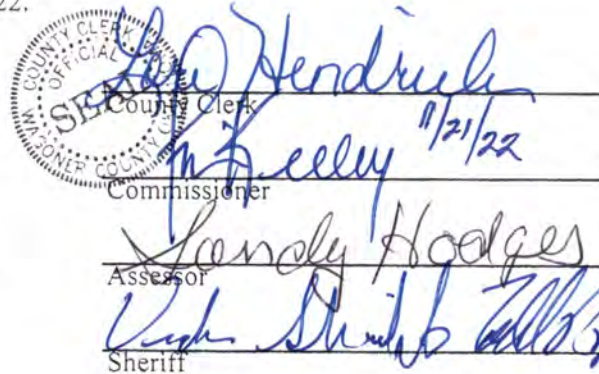 22.
COUNTY CLERK
OFFICIAL
SEAL
WAGONER COUNTY
Lori Hendricks
County Clerk
Keeley 11/21/22
Commissioner
Sandy Hodges
Assessor
Sheriff